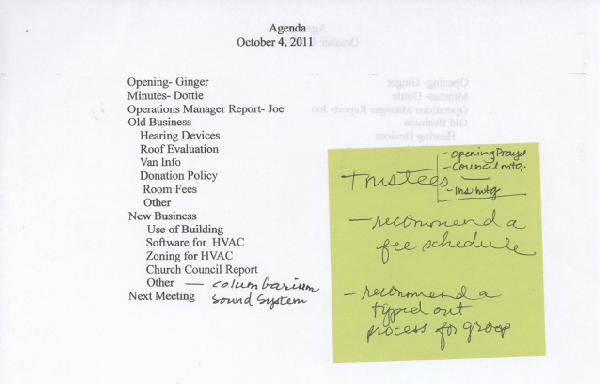 Agenda
October 4, 2011
Opening- Ginger
Minutes- Dottie
Operations Manager Report- Joe
Old Business
Hearing Devices
Roof Evaluation
Van Info
Donation Policy
Room Fees
Other
New Business
Use of Building
Software for HVAC
Zoning for HVAC
Church Council Report
Other — columbarium
Next Meeting sound system
Trustees
- Opening Prayer
- Council mtg.
- Ins mtg
- recommend a
fee schedule
- recommend a
typed out
process for group